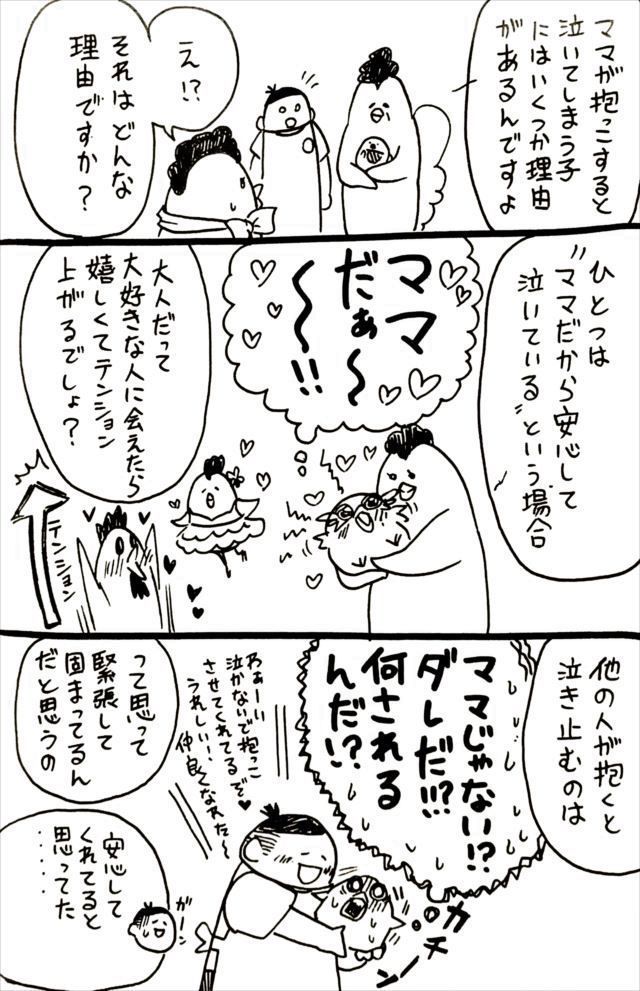 ママが抱っこすると
泣いてしまう子
にはいくつか理由
があるんですよ
え!?
それはどんな
理由ですか?
ひとつは
"ママだから安心して
泣いている"という場合
ママ
だぁ〜
〜!!
大人だって
大好きな人に会えたら
嬉しくてテンション
上がるでしょ?
テンション
他の人が抱くと
泣き止むのは
ママじゃない!?
ダレだ!!?
何される
んだ!?
カチーン
わぁーい
泣かないで抱っこ
させてくれてるぞ♥
うれしい!
仲良くなれた〜
って思って
緊張して
固まってるん
だと思うの
ガーン
安心して
くれてると
思ってた
……